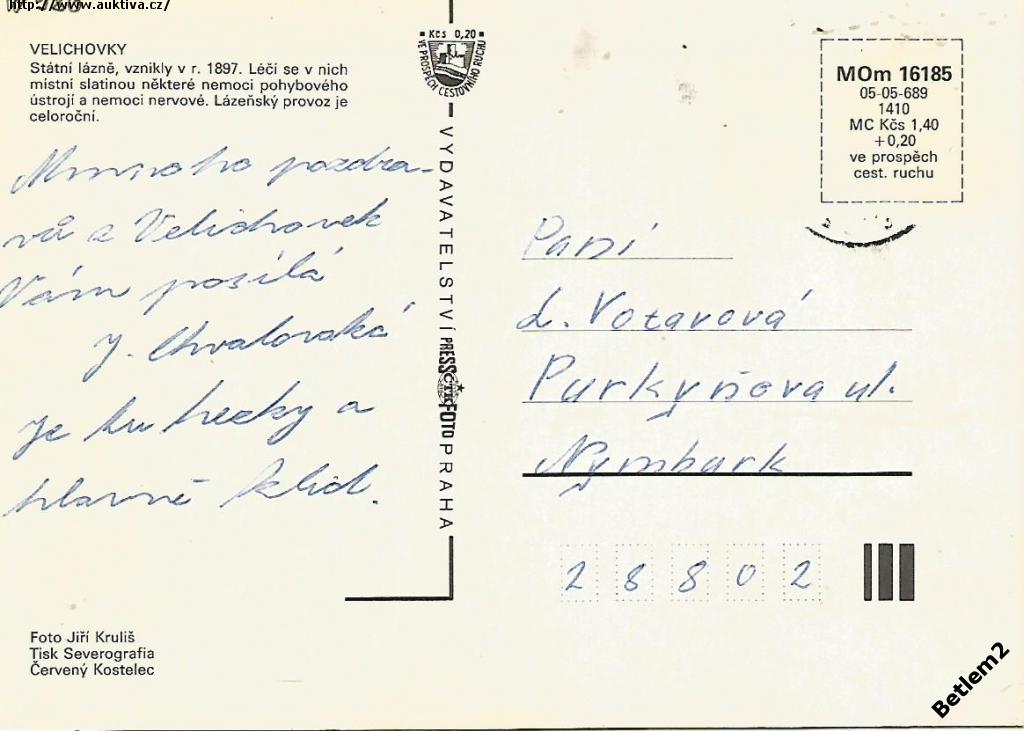 http://www.auktiva.cz/
VELICHOVKY
Státní lázně, vznikly v r. 1897. Léčí se v nich
místní slatinou některé nemoci pohybového
ústrojí a nemoci nervové. Lázeňský provoz je
celoroční.
Mnoho pozdra-
vů z Velichovek
Vám posílá
J. Chvalovská
Je tu hezky a
hlavně klid.
Foto Jiří Kruliš
Tisk Severografia
Červený Kostelec
Kčs 0,20
VE PROSPĚCH CESTOVNÍHO RUCHU
VYDAVATELSTVÍ PRESSFOTO PRAHA
ČTK
MOm 16185
05-05-689
1410
MC Kčs 1,40
+0,20
ve prospěch
cest. ruchu
Paní
L. Votavová
Purkyňova ul.
Nymburk
28802
Betlem2